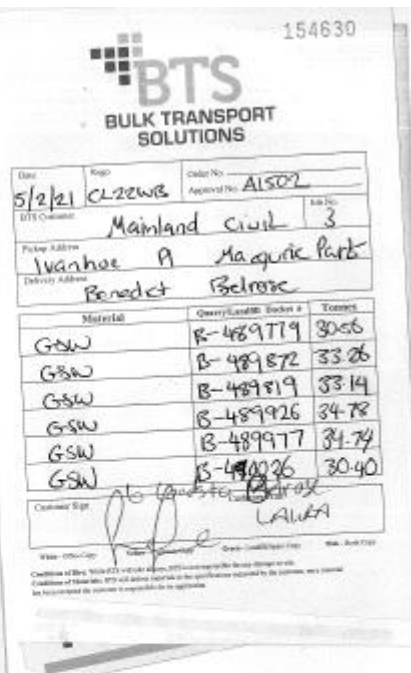 154630
BTS
BULK TRANSPORT
SOLUTIONS
Date Rego Order No.
5/2/21 CL22WB Approval No. A1502
BTS Customer Job No.
Mainland Civil 3
Pickup Address
Ivanhoe A Maquric Park
Delivery Address
Benedict Belrose
Material Quarry/Landfill Docket # Tonnes
GSW B-489779 30.56
GSW B-489872 33.26
GSW B-489819 33.14
GSW B-489926 34.78
GSW B-489977 34.74
GSW 30.40
Customer Sign
LAURA
White - Office Copy
Conditions of Hire:
Conditions of Materials: